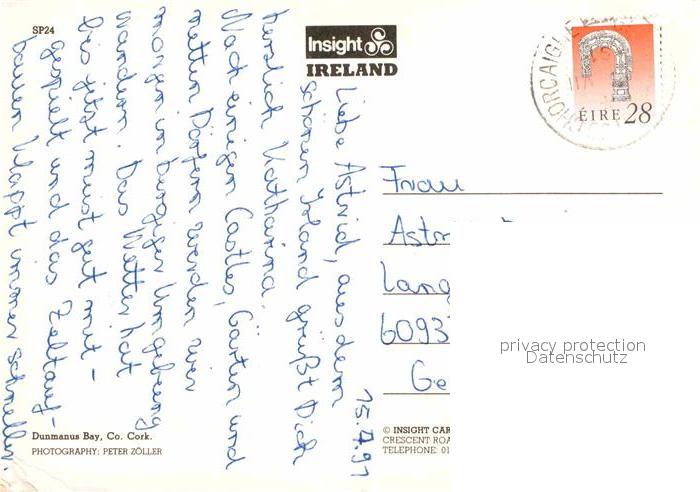 SP24
Insight
IRELAND
ÉIRE 28
15.7.91
Liebe Astrid, aus dem
schönen Irland grüßt Dich
herzlich Katharina.
Nach einigen Castles, Gärten und
netten Dörfern werden wir
morgen in bergiger Umgebung
wandern. Das Wetter hat
bis jetzt meist gut mit-
gespielt und das Zeltauf-
bauen klappt immer schneller.
Frau
Astr
Lang
6093
Ge
privacy protection
Datenschutz
Dunmanus Bay, Co. Cork.
PHOTOGRAPHY: PETER ZÖLLER
© INSIGHT CAR
CRESCENT ROA
TELEPHONE: 01